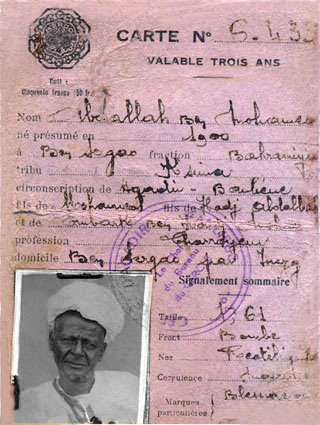 CARTE N° S.433
VALABLE TROIS ANS
Coût :
Cinquante francs (50 fr.)
Nom Abdallah Ben Mohamed
né présumé en 1900
à Ben Sergao fraction
tribu Ksima
circonscription de Agadir - Banlieue
fils de Mohamed fils de Hadj Abdallah
et de Embarka Ben
profession
domicile Ben Sergao par
Signalement sommaire
Taille 1.61
Front Bombé
Nez Rectiligne
Corpulence Moyenne
Marques particulières